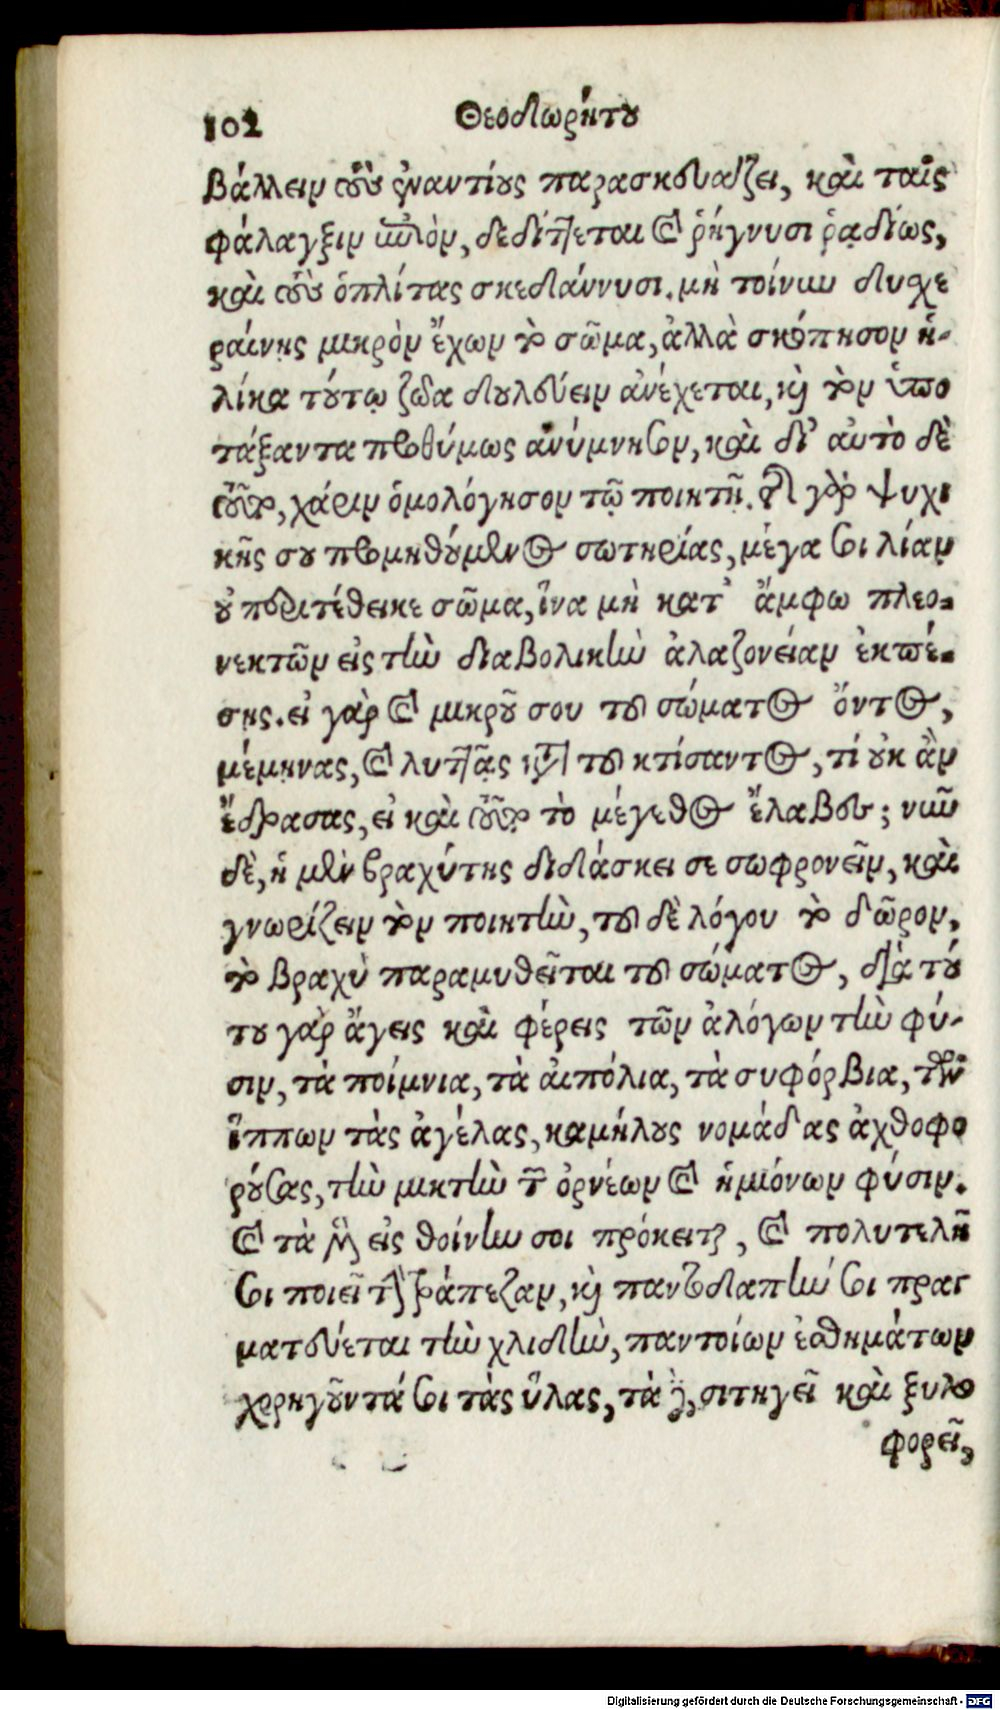 102 Θεοδωρήτου
βάλλειν τοὺς ἐναντίους παρασκευάζει, καὶ ταῖς
φάλαγξιν ἐπιὸν, δεδίττεται καὶ ῥήγνυσι ῥαδίως,
καὶ τοὺς ὁπλίτας σκεδάννυσι. μὴ τοίνυν δυσχε
ραίνῃς μικρὸν ἔχων τὸ σῶμα, ἀλλὰ σκόπησον ἡ-
λίκα τούτῳ ζῶα δουλεύειν ἀνέχεται, καὶ τὸν ὑπο
τάξαντα προθύμως ἀνύμνησον, καὶ δι' αὐτὸ δὲ
τοῦτο, χάριν ὁμολόγησον τῷ ποιητῇ. τῆς γὰρ ψυχι
κῆς σου προμηθούμενος σωτηρίας, μέγα σοι λίαν
οὐ περιτέθεικε σῶμα, ἵνα μὴ κατ' ἄμφω πλεο-
νεκτῶν εἰς τὴν διαβολικὴν ἀλαζονείαν ἐκπέ-
σῃς. εἰ γὰρ καὶ μικροῦ σου τοῦ σώματος ὄντος,
μέμηνας, καὶ λυττᾷς κατὰ τοῦ κτίσαντος, τί οὐκ ἂν
ἔδρασας, εἰ καὶ τοῦτο τὸ μέγεθος ἔλαβες; νῦν
δὲ, ἡ μὲν βραχύτης διδάσκει σε σωφρονεῖν, καὶ
γνωρίζειν τὸν ποιητὴν, τοῦ δὲ λόγου τὸ δῶρον,
τὸ βραχὺ παραμυθεῖται τοῦ σώματος, διὰ τού
του γὰρ ἄγεις καὶ φέρεις τῶν ἀλόγων τὴν φύ-
σιν, τὰ ποίμνια, τὰ αἰπόλια, τὰ συφόρβια, τῶν
ἵππων τὰς ἀγέλας, καμήλους νομάδας ἀχθοφο
ρούσας, τὴν μικτὴν τῶν ὀρνέων καὶ ἡμιόνων φύσιν.
καὶ τὰ μὲν εἰς θοίνην σοι πρόκειται, καὶ πολυτελῆ
σοι ποιεῖ τὴν τράπεζαν, καὶ παντοδαπὴν σοι πραγ
ματεύεται τὴν χλιδὴν, παντοίων ἐσθημάτων
χορηγοῦντά σοι τὰς ὕλας, τὰ δὲ, σιτηγεῖ καὶ ξυλο
φορεῖ,
Digitalisierung gefördert durch die Deutsche Forschungsgemeinschaft - DFG